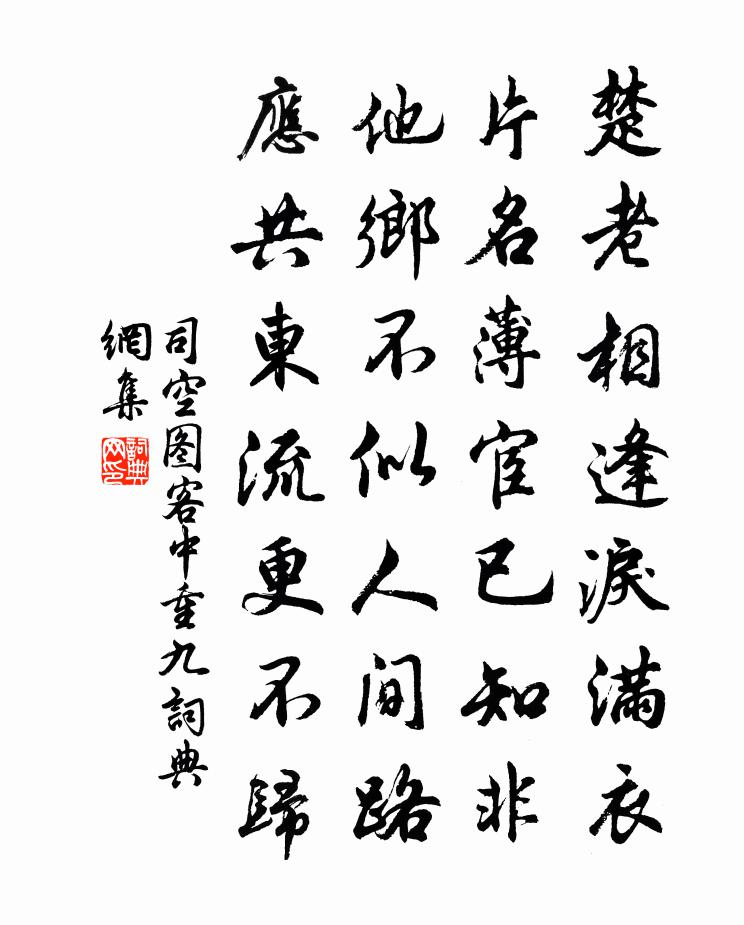 楚老相逢淚滿衣
片名薄宦已知非
他鄉不似人間路
應共東流更不歸
司空图客中重九詞典
網集
詞典
网印